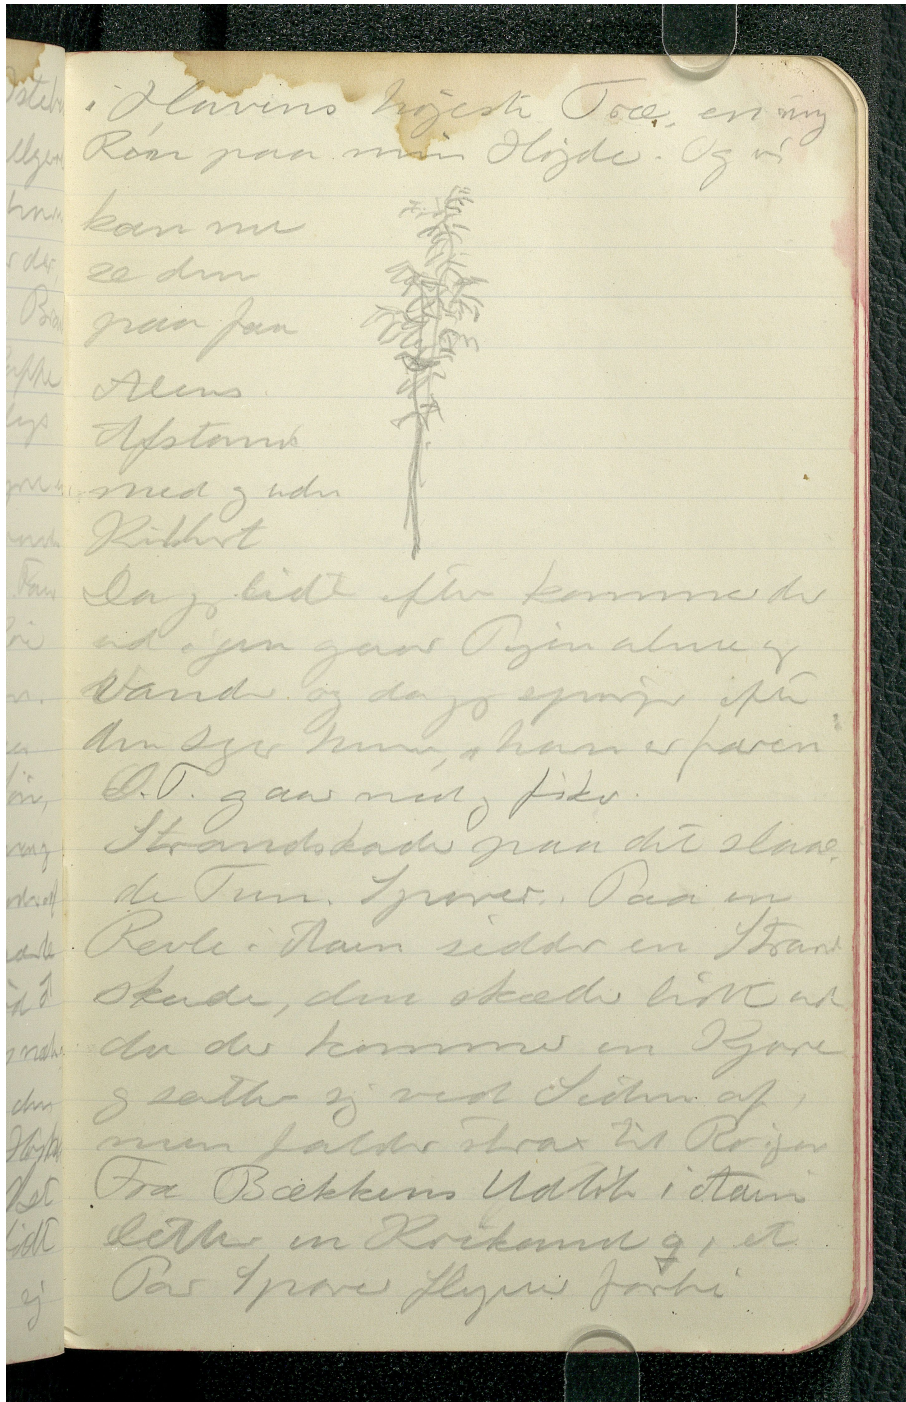 i Havens højeste Træ, en ny
Røn paa min Højde. Og vi
kan nu
se den
paa faa
Alens
Afstand
med og uden
Kikkert
Da jeg lidt efter kommer der
ud igen gaar Pigen alene og
Vander og da jeg spørger efter
den siger hun, han er faren
O.T. gaar ned og fisker.
Strandskader paa det slaae-
de Tun. Sparer. Paa en
Revle i Aaen sidder en Strand
skade, den skæder lidt ud
da der kommer en Kjove
og sætter sig ved Siden af,
men falder strax til Ro igen
Fra Bækkens Udløb i Aaen
letter en Krikand ♀, et
Par Sparer flyver forbi